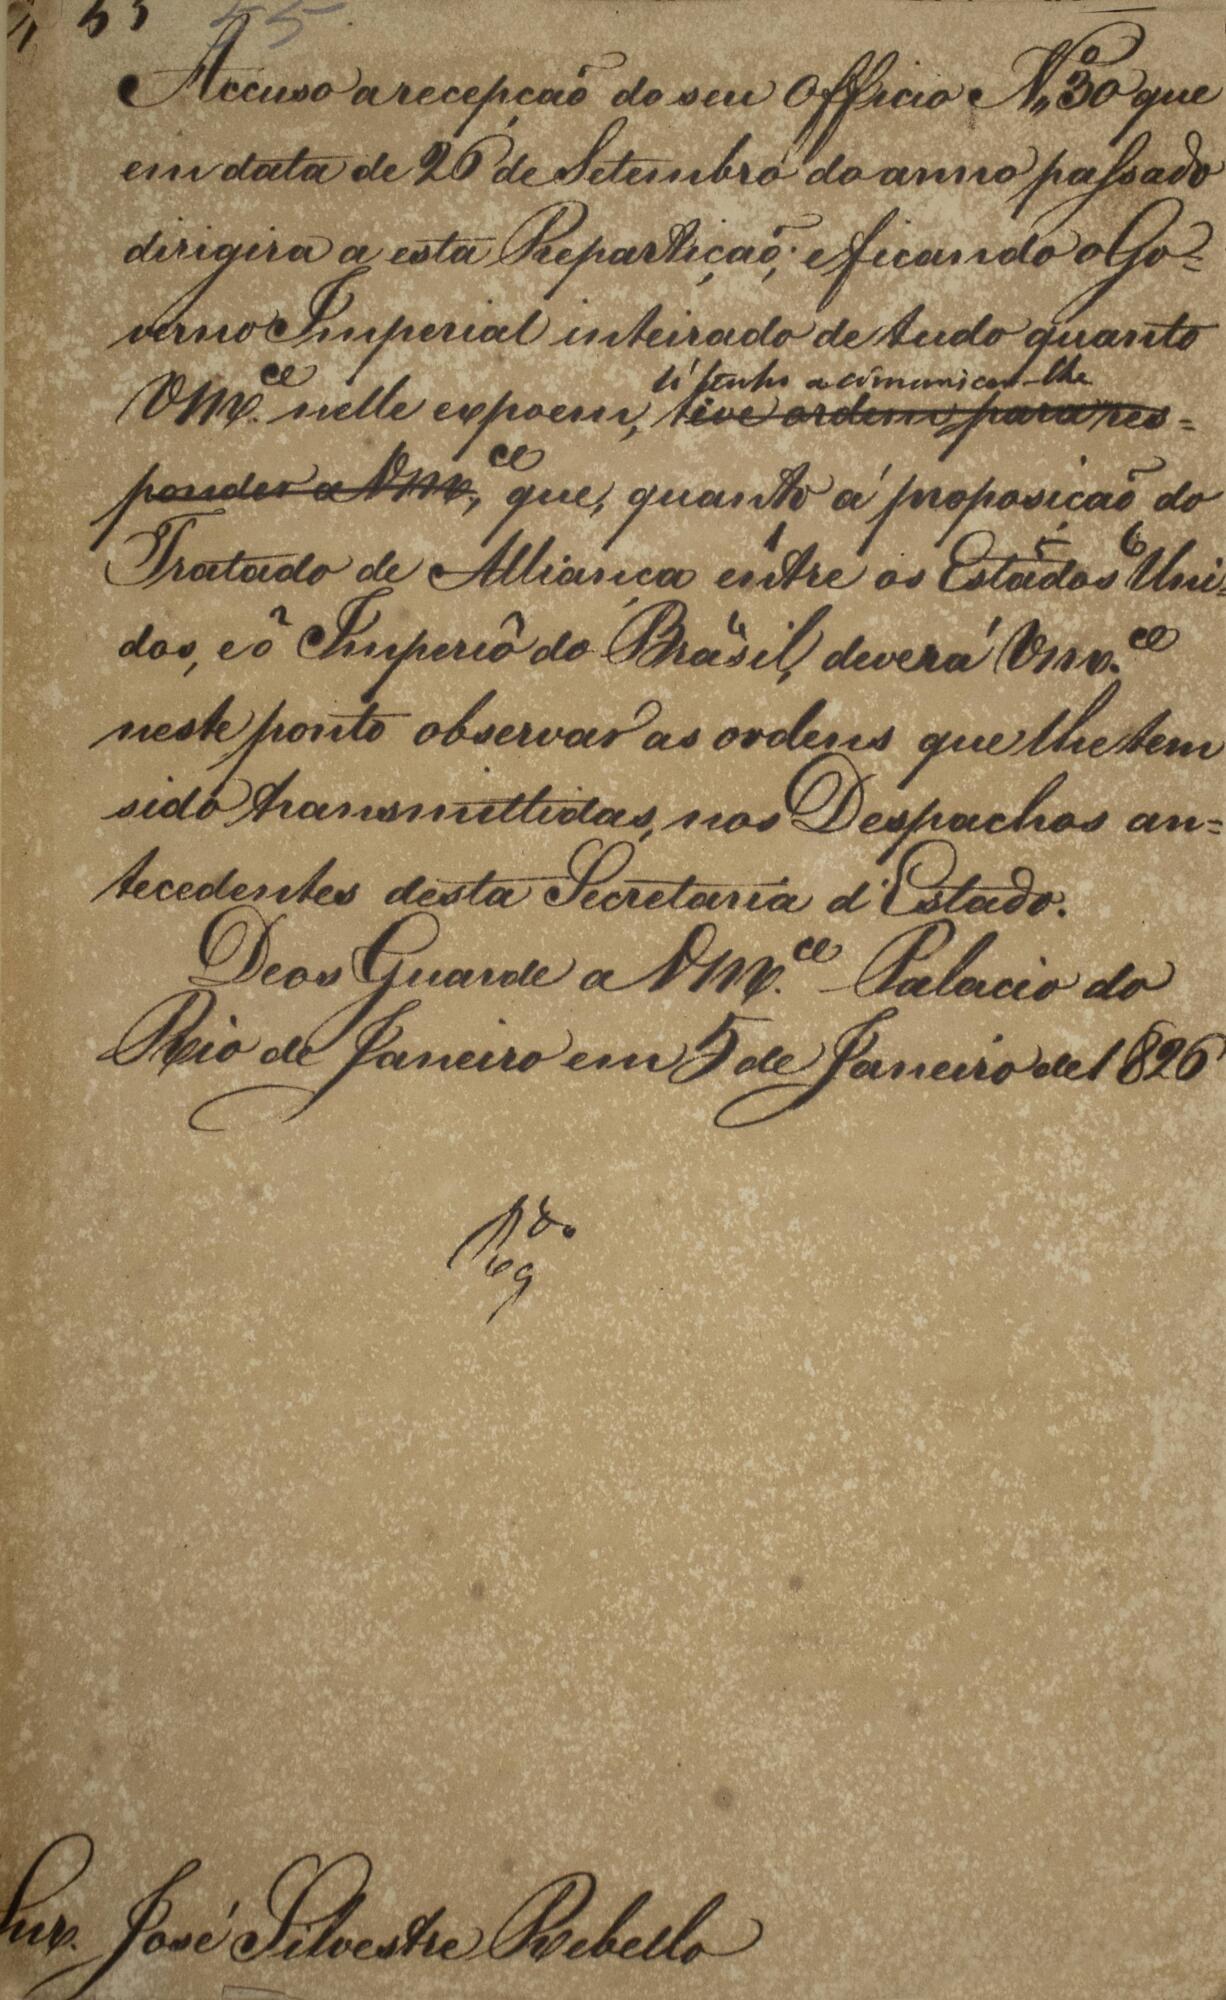 55
Accuso a recepção do seu Officio N.º 30 que
em data de 26 de Setembro do anno passado
dirigira a esta Repartição; e ficando o Go=
verno Imperial inteirado de tudo quanto
tenho a comunicar-lhe
VM.ce nelle expoem, tive ordem para res=
ponder a VM.ce, que, quanto á proposição do
Tratado de Alliança entre os Estados Uni=
dos, e o Imperio do Brasil, deverá Vm.ce
neste ponto observar as ordens que lhe tem
sido transmittidas, nos Despachos an=
tecedentes desta Secretaria d'Estado.
Deos Guarde a VM.ce Palacio do
Rio de Janeiro em 5 de Janeiro de 1826
Snr. José Silvestre Rebello